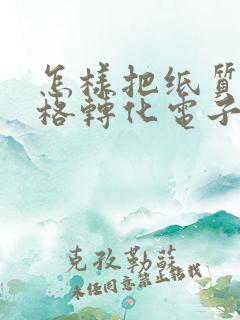 怎樣把纸質
格轉化電子
克孜勒蘇
未经同意禁止搬栽